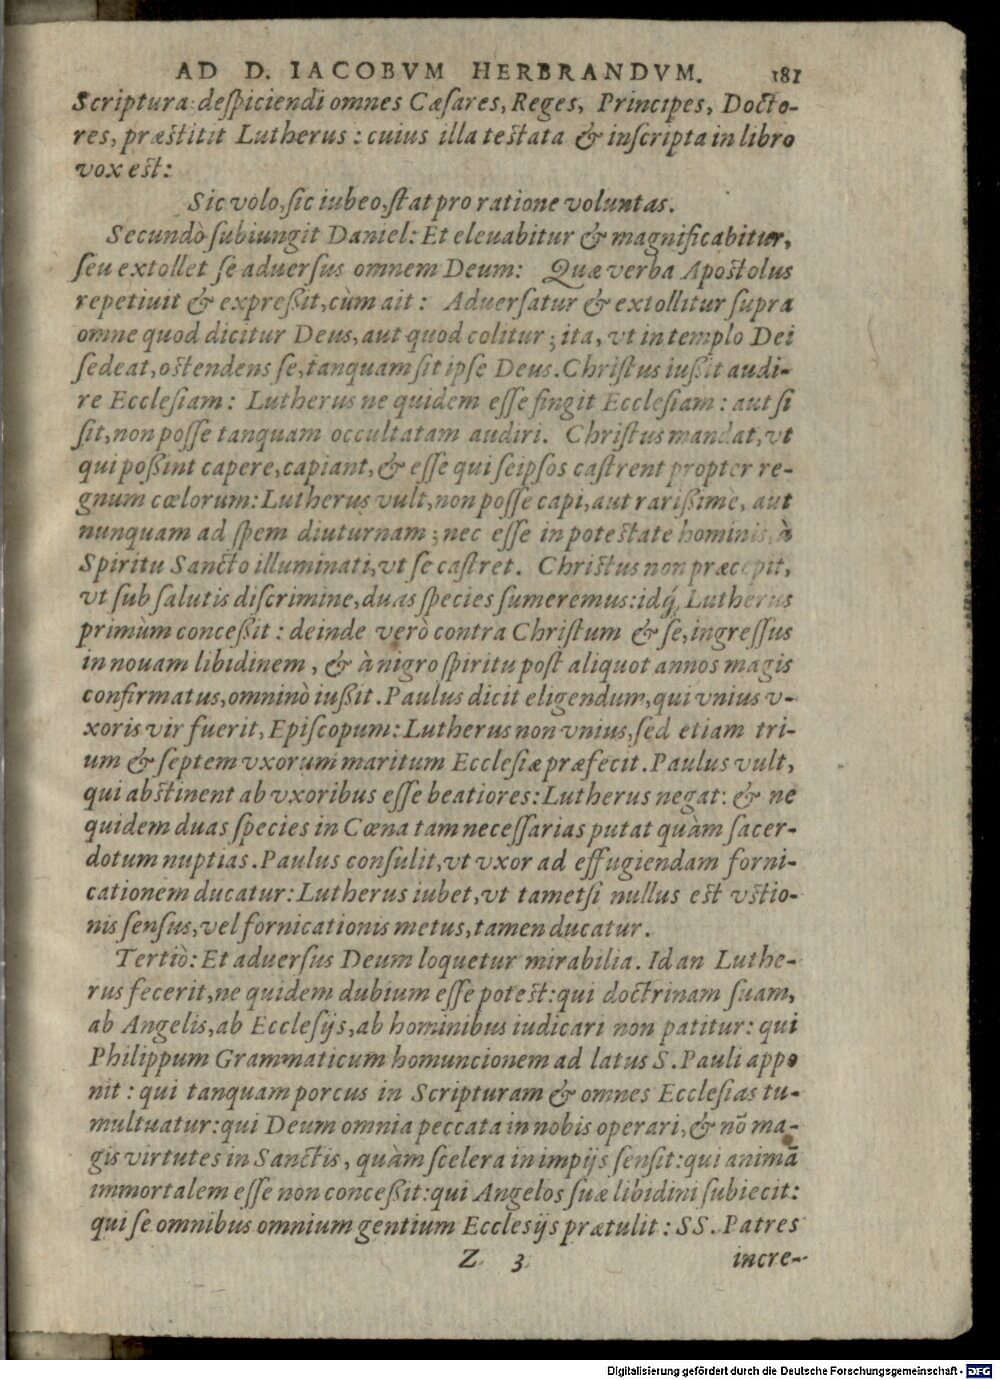 AD D. IACOBVM HERBRANDVM. 181
Scriptura: deſpiciendi omnes Cæſares, Reges, Principes, Docto-
res, præſtitit Lutherus: cuius illa teſtata & inſcripta in libro
vox eſt:
Sic volo, ſic iubeo, ſtat pro ratione voluntas.
Secundò ſubiungit Daniel: Et eleuabitur & magnificabitur,
ſeu extollet ſe aduerſus omnem Deum: Quæ verba Apoſtolus
repetiuit & expreßit, cùm ait: Aduerſatur & extollitur ſupra
omne quod dicitur Deus, aut quod colitur; ita, vt in templo Dei
ſedeat, oſtendens ſe, tanquam ſit ipſe Deus. Chriſtus iußit audi-
re Eccleſiam: Lutherus ne quidem eſſe fingit Eccleſiam: aut ſi
ſit, non poſſe tanquam occultatam audiri. Chriſtus mandat, vt
qui poßint capere, capiant, & eſſe qui ſeipſos caſtrent propter re-
gnum cœlorum: Lutherus vult, non poſſe capi, aut rarißime, aut
nunquam ad ſpem diuturnam; nec eſſe in poteſtate hominis à
Spiritu Sancto illuminati, vt ſe caſtret. Chriſtus non præcepit,
vt ſub ſalutis diſcrimine, duas ſpecies ſumeremus: idq́; Lutherus
primùm conceßit: deinde verò contra Chriſtum & ſe, ingreſſus
in nouam libidinem, & à nigro ſpiritu poſt aliquot annos magis
confirmatus, omninò iußit. Paulus dicit eligendum, qui vnius v-
xoris vir fuerit, Epiſcopum: Lutherus non vnius, ſed etiam tri-
um & ſeptem vxorum maritum Eccleſiæ præfecit. Paulus vult,
qui abſtinent ab vxoribus eſſe beatiores: Lutherus negat: & ne
quidem duas ſpecies in Cœna tam neceſſarias putat quàm ſacer-
dotum nuptias. Paulus conſulit, vt vxor ad effugiendam forni-
cationem ducatur: Lutherus iubet, vt tametſi nullus eſt vſtio-
nis ſenſus, vel fornicationis metus, tamen ducatur.
Tertiò: Et aduerſus Deum loquetur mirabilia. Id an Luthe-
rus fecerit, ne quidem dubium eſſe poteſt: qui doctrinam ſuam,
ab Angelis, ab Eccleſijs, ab hominibus iudicari non patitur: qui
Philippum Grammaticum homuncionem ad latus S. Pauli appo
nit: qui tanquam porcus in Scripturam & omnes Eccleſias tu-
multuatur: qui Deum omnia peccata in nobis operari, & nō ma-
gis virtutes in Sanctis, quàm ſcelera in impijs ſenſit: qui animā
immortalem eſſe non conceßit: qui Angelos ſuæ libidini ſubiecit:
qui ſe omnibus omnium gentium Eccleſijs prætulit: SS. Patres
Z 3 incre-
Digitalisierung gefördert durch die Deutsche Forschungsgemeinschaft - DFG